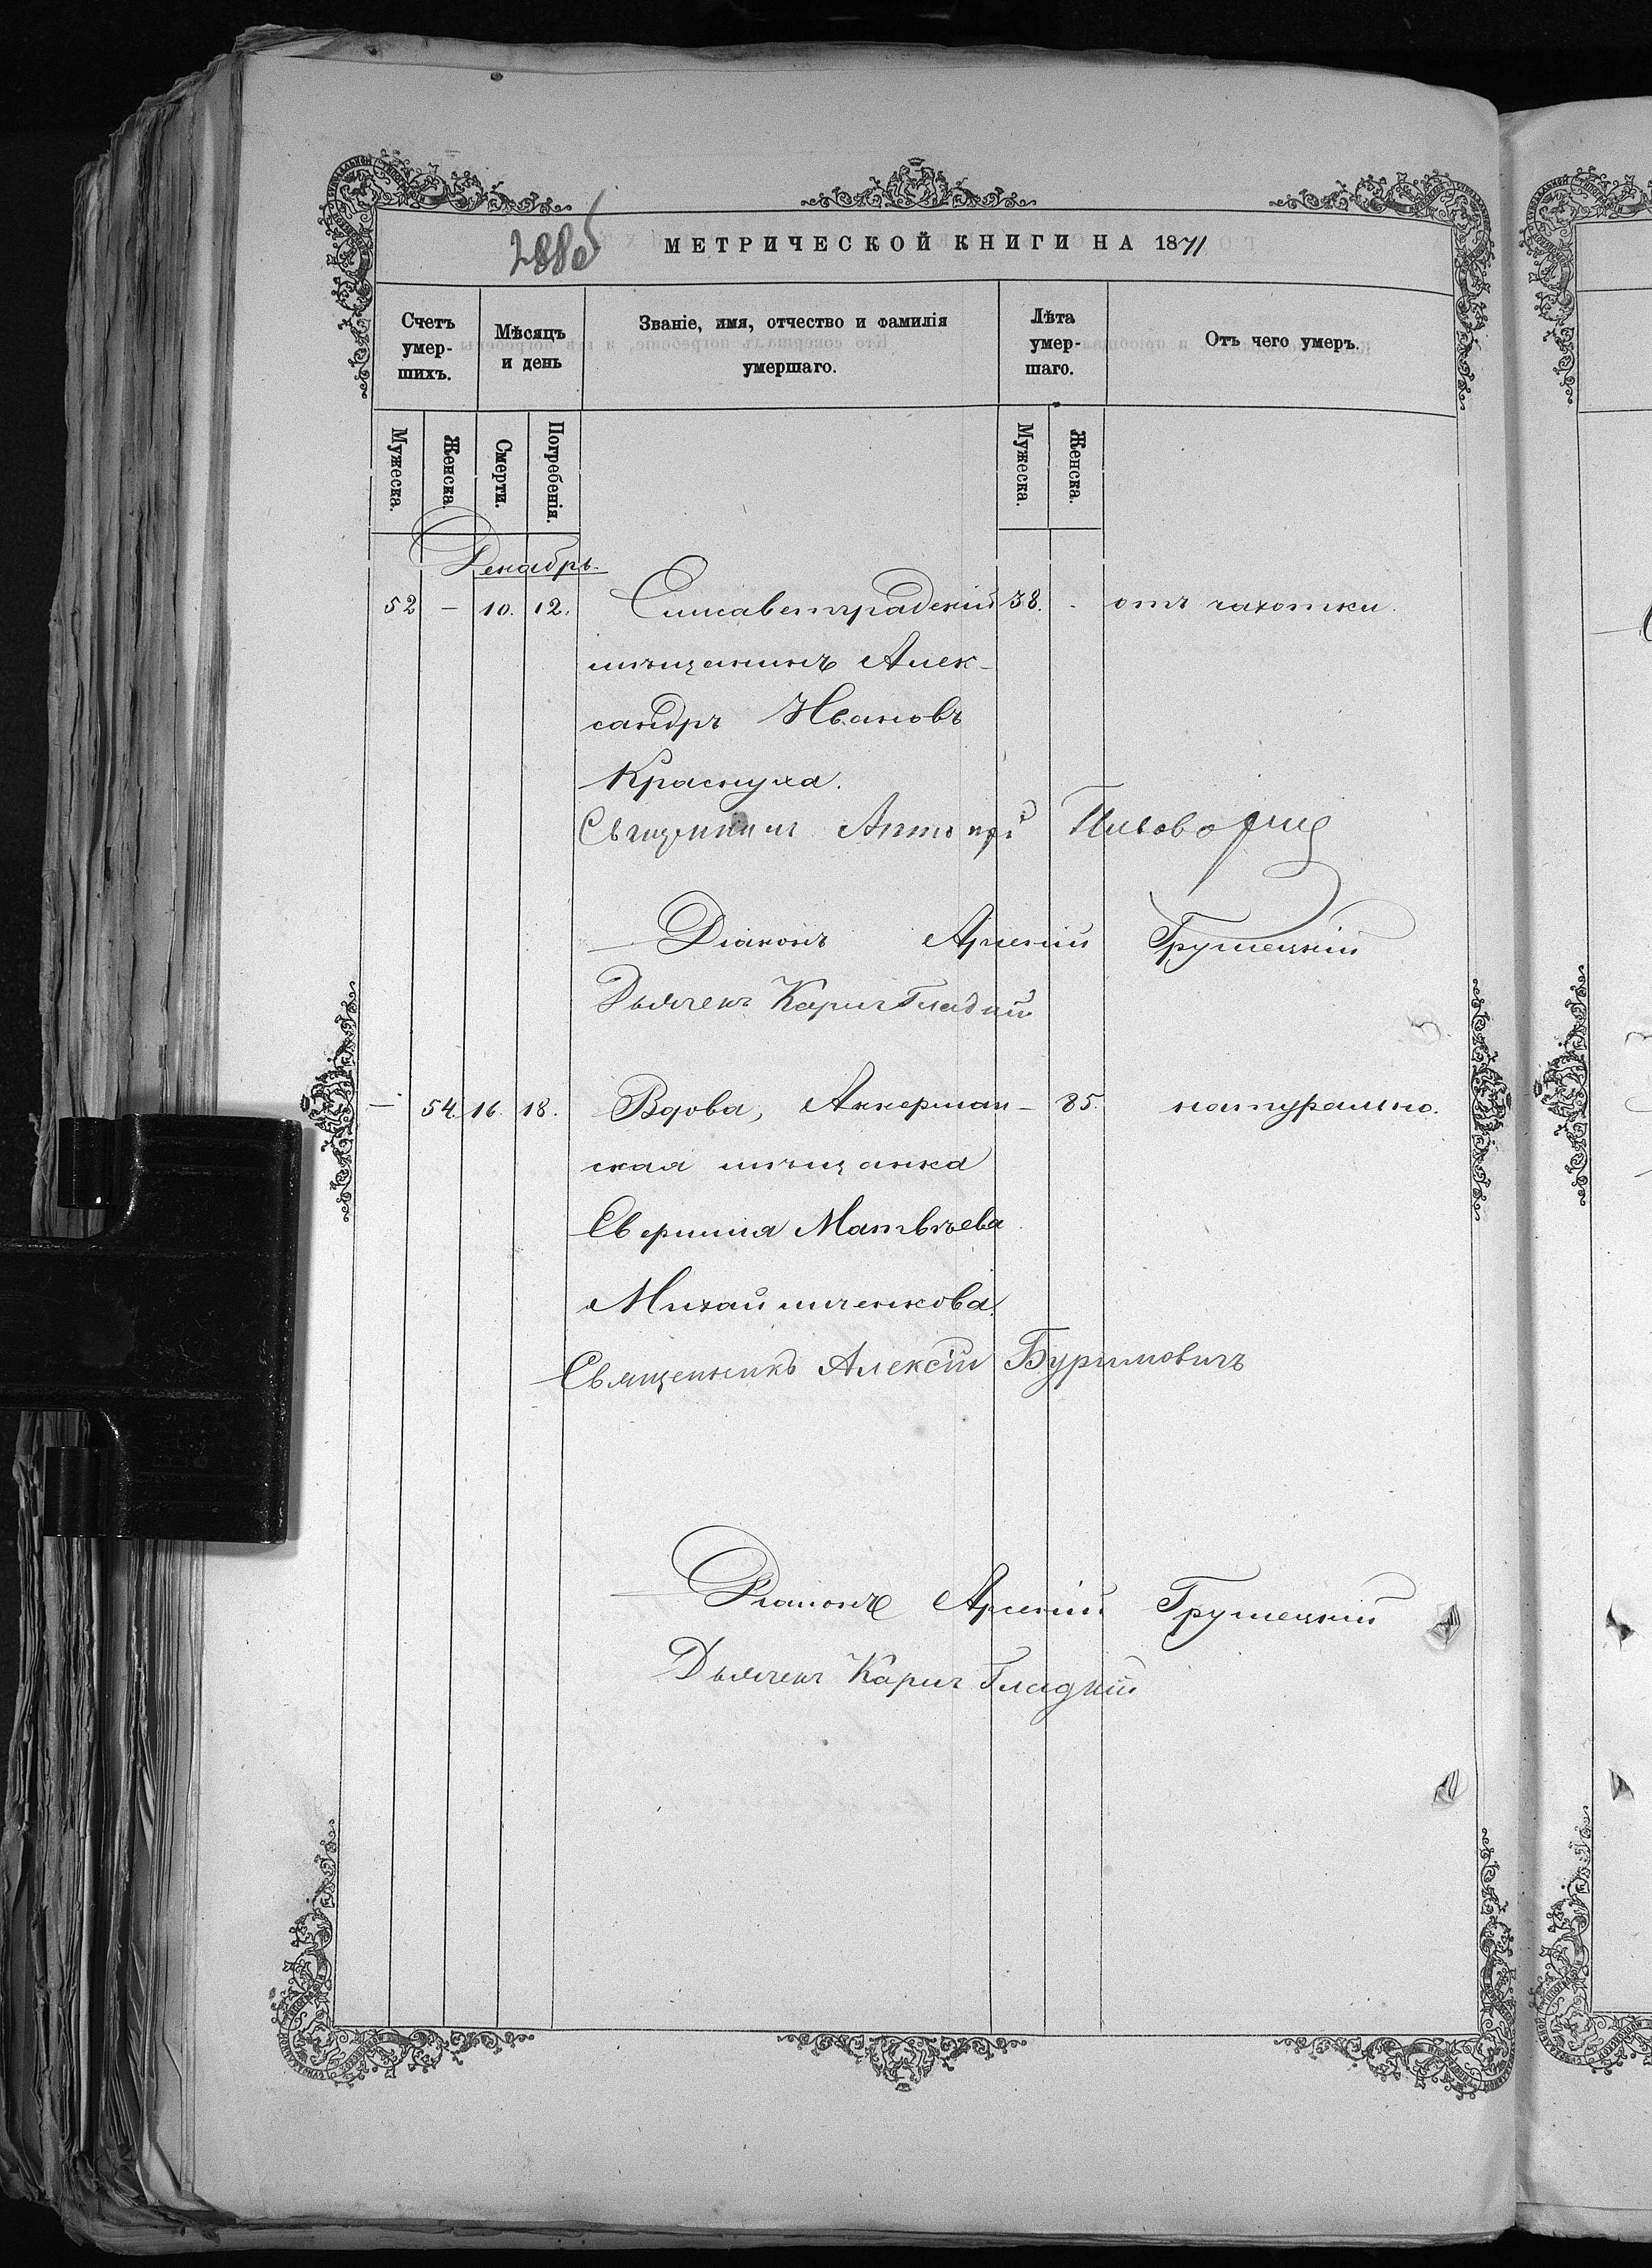 288об
МЕТРИЧЕСКОЙ КНИГИ НА 1871
Счетъ умер-шихъ.
Мѣсяцъ и день
Званіе, имя, отчество и фамилія умершаго.
Лѣта умер-шаго.
Отъ чего умеръ.
Мужеска. Женска. Смерти. Погребенія. Мужеска. Женска.
Декабрь
52 – 10. 12. Елисаветградскій 38. - отъ чахотки.
мѣщанинъ Алек-
сандръ Ивановъ
Краснуха.
Священникъ Антоній
Діаконъ Арсеній Грушецкій
Дьячекъ Карпъ Гладкій
– 54. 16. 18. Вдова, Аккерман- – 85. натурально.
ская мѣщанка
Матвѣева
Михайличенкова.
Священникъ Алексій Буримовичъ
Діаконъ Арсеній Грушецкій
Дьячекъ Карпъ Гладкій